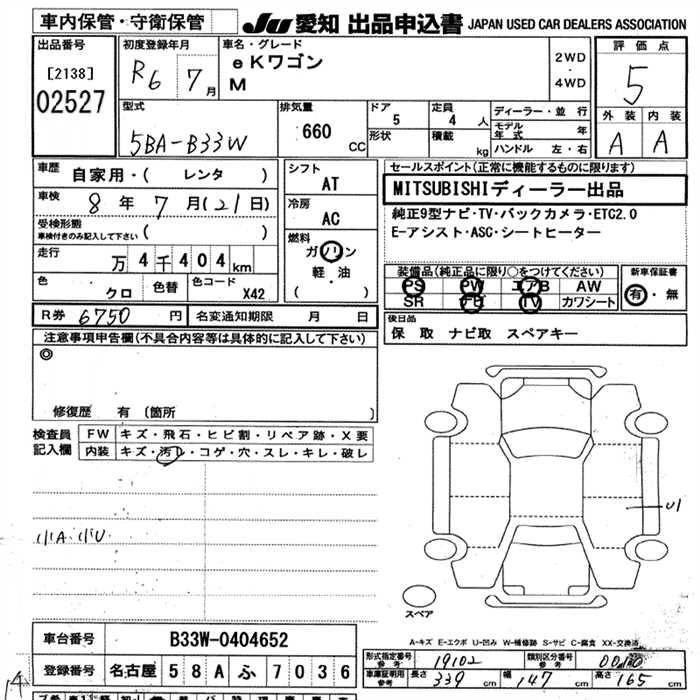 車内保管・守衛保管
JU 愛知 出品申込書 JAPAN USED CAR DEALERS ASSOCIATION
出品番号
[2138]
02527
初度登録年月
R6 7月
車名・グレード
eKワゴン
M
2WD
・
4WD
評価点
5
外装 内装
A A
型式
5BA-B33W
排気量
660
CC
ドア
5
形状
定員
4 人
積載
kg
ディーラー・並行
モデル年式 年
ハンドル 左・右
車歴
自家用・( レンタ )
車検
8年 7月(21日)
受検形態
車検付きのみ記入して下さい ( )
走行
万4千404km
色
クロ
色替
色コード
X42
シフト
AT
冷房
AC
燃料
ガソリン
軽・油
( )
セールスポイント(正常に機能するものに限ります)
MITSUBISHIディーラー出品
純正9型ナビ・TV・バックカメラ・ETC2.0
E-アシスト・ASC・シートヒーター
装備品(純正品に限り○をつけてください)
PS PW エアB AW
SR ナビ TV カワシート
新車保証書
有・無
R券 6750 円
名変通知期限 月 日
後日品
保 取 ナビ取 スペアキー
注意事項申告欄(不具合内容等は具体的に記入して下さい)
◎
修復歴 有 [箇所 ]
検査員
記入欄
FW キズ・飛石・ヒビ割・リペア跡・X要
内装 キズ・汚レ・コゲ・穴・スレ・キレ・破レ
小A 小U
U1
スペア
A-キズ E-エクボ U-凹み W-補修跡 S-サビ C-腐食 XX-交換済
車台番号
B33W-0404652
登録番号
名古屋 58A ふ 7036
形式指定番号
参考
19102
類別区分番号
参考
車庫証明用
参考
長さ 339 cm
幅 147 cm
高さ 165 cm